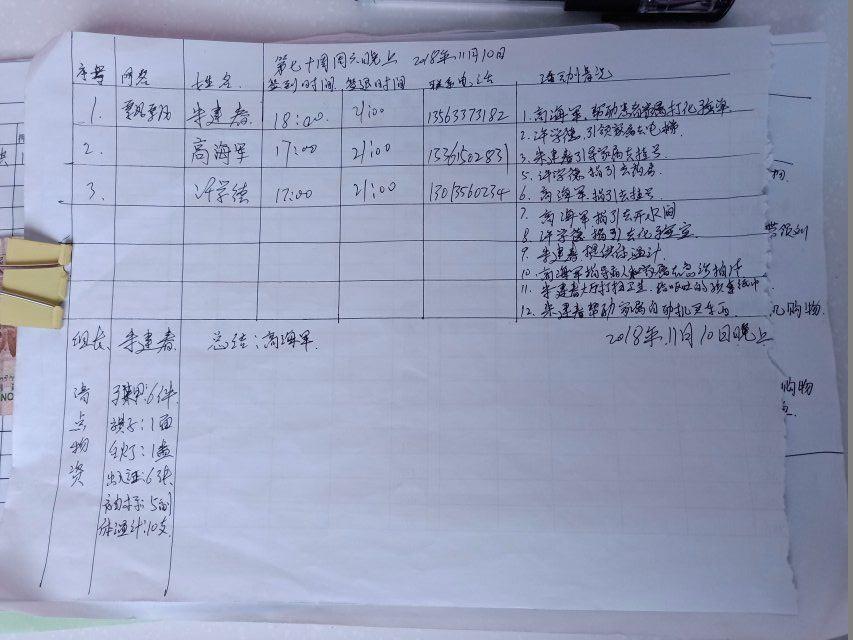 第七十周周六晚上 2018年11月10日
序号 网名 姓名 签到时间 签退时间 联系电话 活动情况
1. 朱建春 18:00 21:00 13563373182
2. 高海军 17:00 21:00 13361502831
3. 许学德 17:00 21:00 13013560234
1. 高海军帮助患者家属打化验单
2. 许学德引领家属去电梯
3. 朱建春引导家属去挂号
5. 许学德指引去药房
6. 高海军指引去挂号
7. 高海军指引去开水间
8. 许学德指引去化验室
9. 朱建春提供体温计
10. 高海军指导病人和家属去急诊拍片
11. 朱建春大厅打扫卫生
12. 朱建春帮助家属自动机
组长 朱建春 总结:高海军 2018年11月10日晚上
清点物资
马甲:6件
旗子:1面
1盏
出入证:6张
5副
体温计:10支
购物
购物